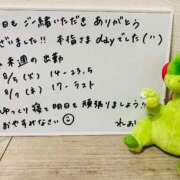 日もご一緒いただき ありがとう
ざいました!! 本指さまdayでした(¨)
来週の出勤
8/5(火) 14-23.5
8/7(木) 17-ラスト
ゆっくり寝て明日も頑張りましょう
おやすみなさい☺
れお